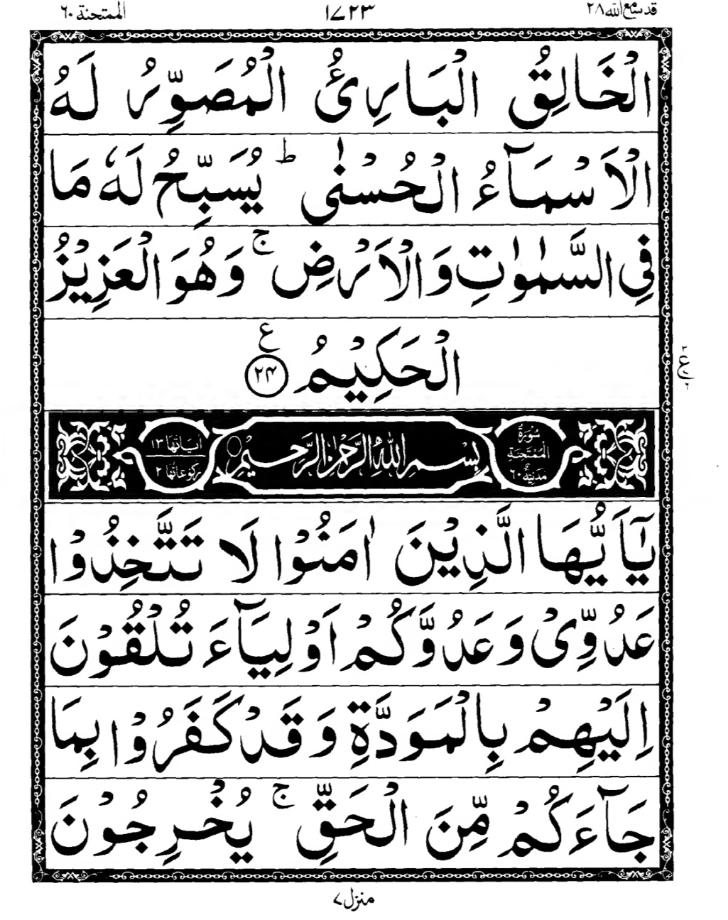 قد سمع الله ۲۸
۱۷۲۳
الممتحنة ۶۰
الْخَالِقُ الْبَارِئُ الْمُصَوِّرُ لَهُ
الْاَسْمَآءُ الْحُسْنٰى ؕ يُسَبِّحُ لَهٗ مَا
فِى السَّمٰوٰتِ وَالْاَرْضِ ۚ وَهُوَ الْعَزِيْزُ
الْحَكِيْمُ ۲۴ ع
سُوْرَةُ الْمُمْتَحِنَةِ مَدَنِيَّةٌ ۶۰
بِسْمِ اللّٰهِ الرَّحْمٰنِ الرَّحِيْمِ
اٰيَاتُهَا ۱۳
رُكُوْعَاتُهَا ۲
يٰۤاَيُّهَا الَّذِيْنَ اٰمَنُوْا لَا تَتَّخِذُوْا
عَدُوِّىْ وَعَدُوَّكُمْ اَوْلِيَآءَ تُلْقُوْنَ
اِلَيْهِمْ بِالْمَوَدَّةِ وَقَدْ كَفَرُوْا بِمَا
جَآءَكُمْ مِّنَ الْحَقِّ ۚ يُخْرِجُوْنَ
منزل ۷